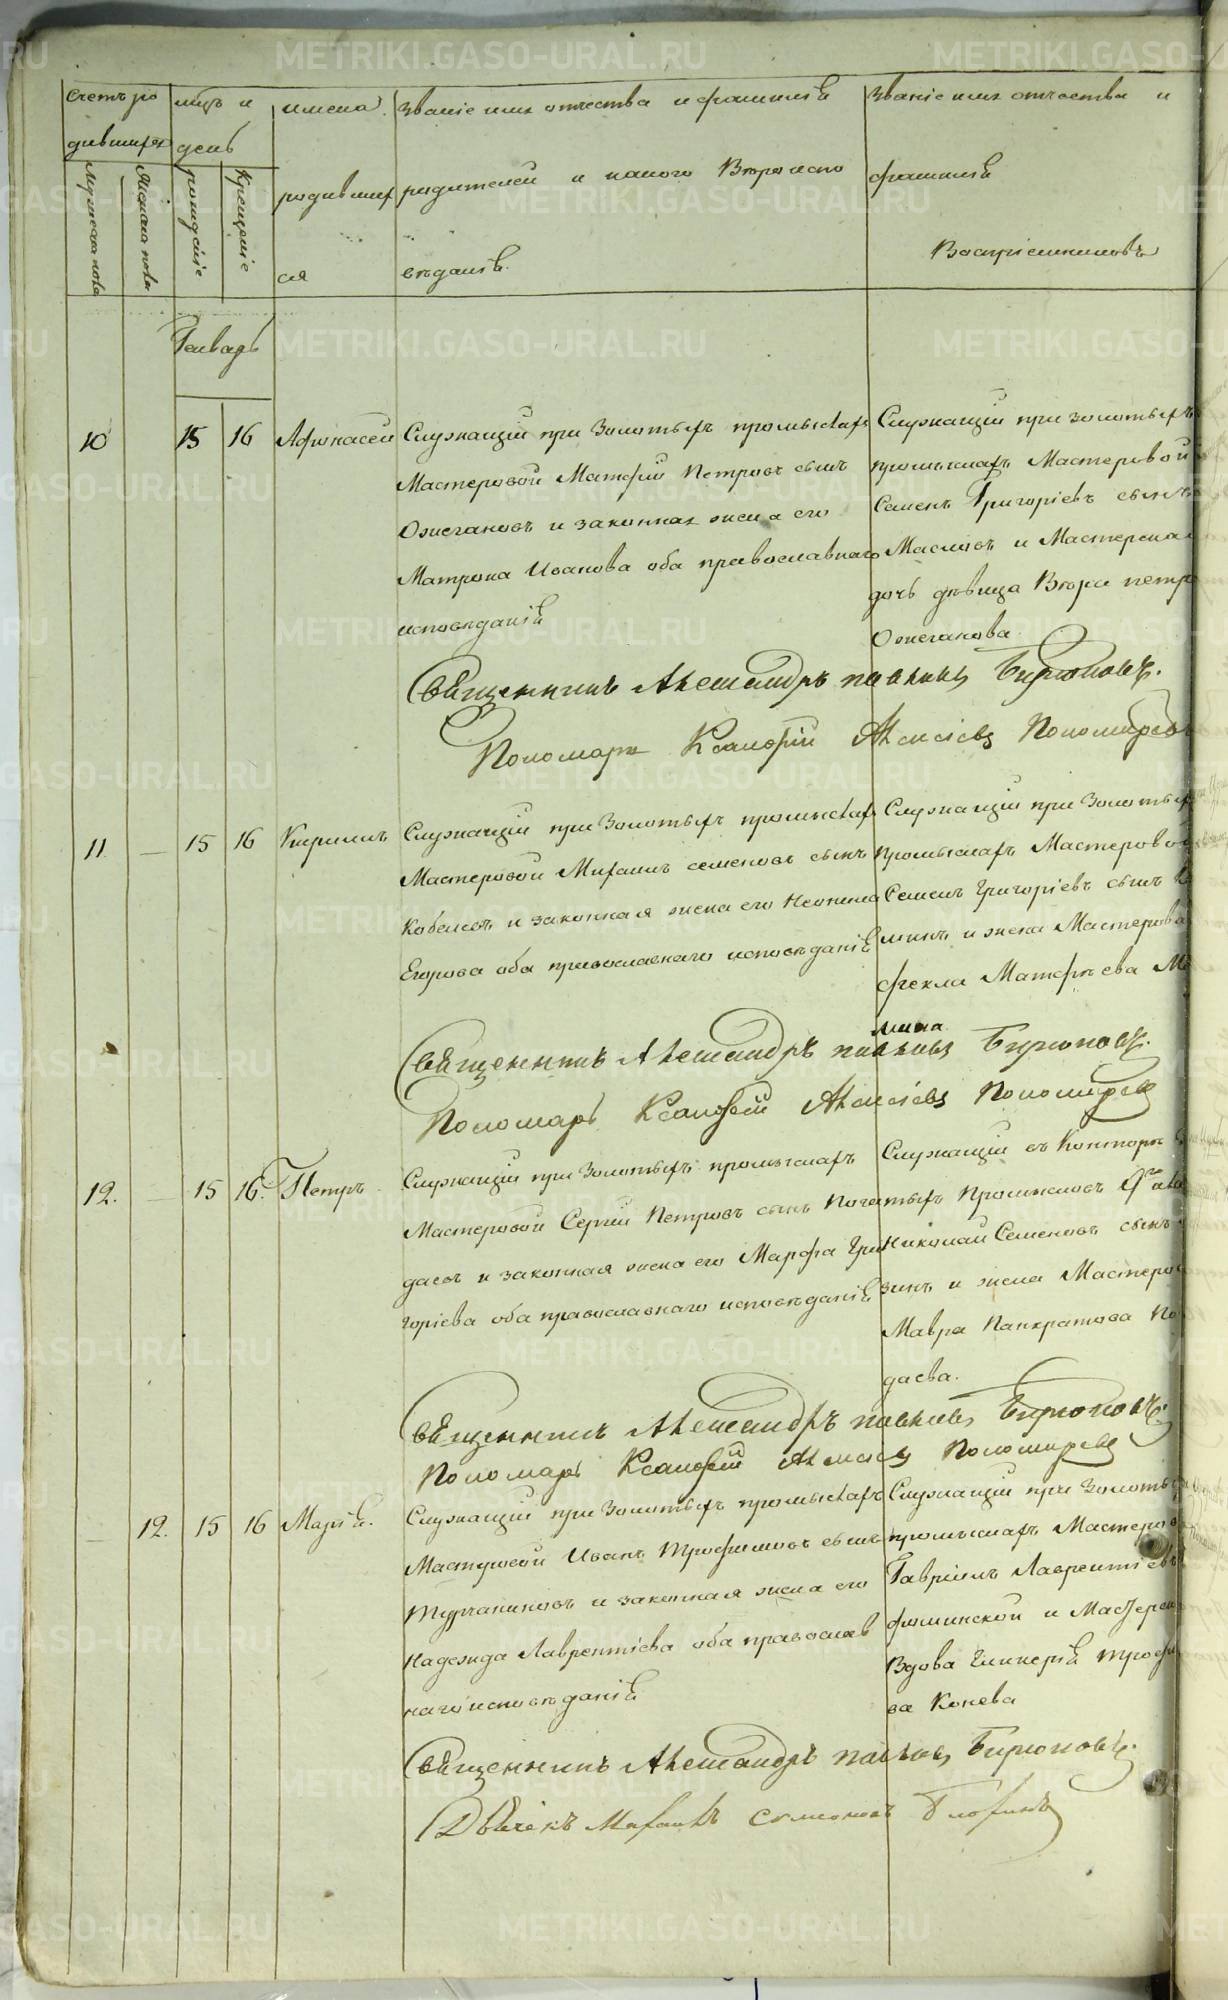 Счетъ ро
дившихся
Мужеска пола
Женска пола
мцъ и
день
рожденіе
Крещеніе
имена
родивших
ся
Званіе имя отчества и фамилія
родителей и какого Вѣроиспо
вѣданія.
Званіе имя отчества и
фамилія
Воспріемниковъ
Генварь
10 15 16 Афонасей
Служащій при Золотыхъ промыслахъ
Мастеровой Матфій Петровъ сынъ
Ожегановъ и законная жена его
Матрона Иванова оба православнаго
исповѣданія
Служащій при золотыхъ
промыслахъ Мастеровой
Семенъ Григоріевъ сынъ
Масловъ и Мастерска
дочь дѣвица Вѣра петр
Ожеганова
Священникъ Александръ павловъ Бирюковъ.
Пономарь Ксанофій Алексіевъ Пономарев
11 — 15 16 Кирилъ
Служащій при Золотыхъ промыслах
Мастеровой Михаилъ семеновъ сынъ
Кобелевъ и законная жена его Неонила
Егорова оба православнаго исповѣданія
Служащій при Золотых
Промыслахъ Мастерово
Семенъ Григоріевъ сынъ
минъ и жена Мастерова
фекла Матфѣева М
мина
Священникъ Александръ павловъ Бирюковъ.
Пономарь Ксанофій Алексіевъ Пономарев
12. — 15 16. Петръ
Служащій при Золотыхъ промыслахъ
Мастеровой Сергій Петровъ сынъ Пога
даевъ и законная жена его Марфа Гри
горіева оба православнаго исповѣданія
Служащій въ Конторѣ
тыхъ Промысловъ
Николай Семеновъ сынъ
зинъ и жена Мастеро
Мавра Панкратова По
даева.
Священникъ Александръ павловъ Бирюковъ.
Пономарь Ксанофій Алексіевъ Пономарев
— 12. 15 16 Марія.
Служащій при Золотыхъ промыслахъ
Мастеровой Иванъ Трофимовъ сынъ
Турчаниновъ и законная жена его
Надежда Лаврентіева оба православ
наго исповѣданія
Служащій при Золоты
промыслахъ Мастеров
Гавріилъ Лаврентіевъ
фоминской и Мастерск
Вдова Гликерія Трофи
ва Конева
Священникъ Александръ павловъ Бирюковъ.
Дьячекъ Михаилъ Симеоновъ
METRIKI.GASO-URAL.RU